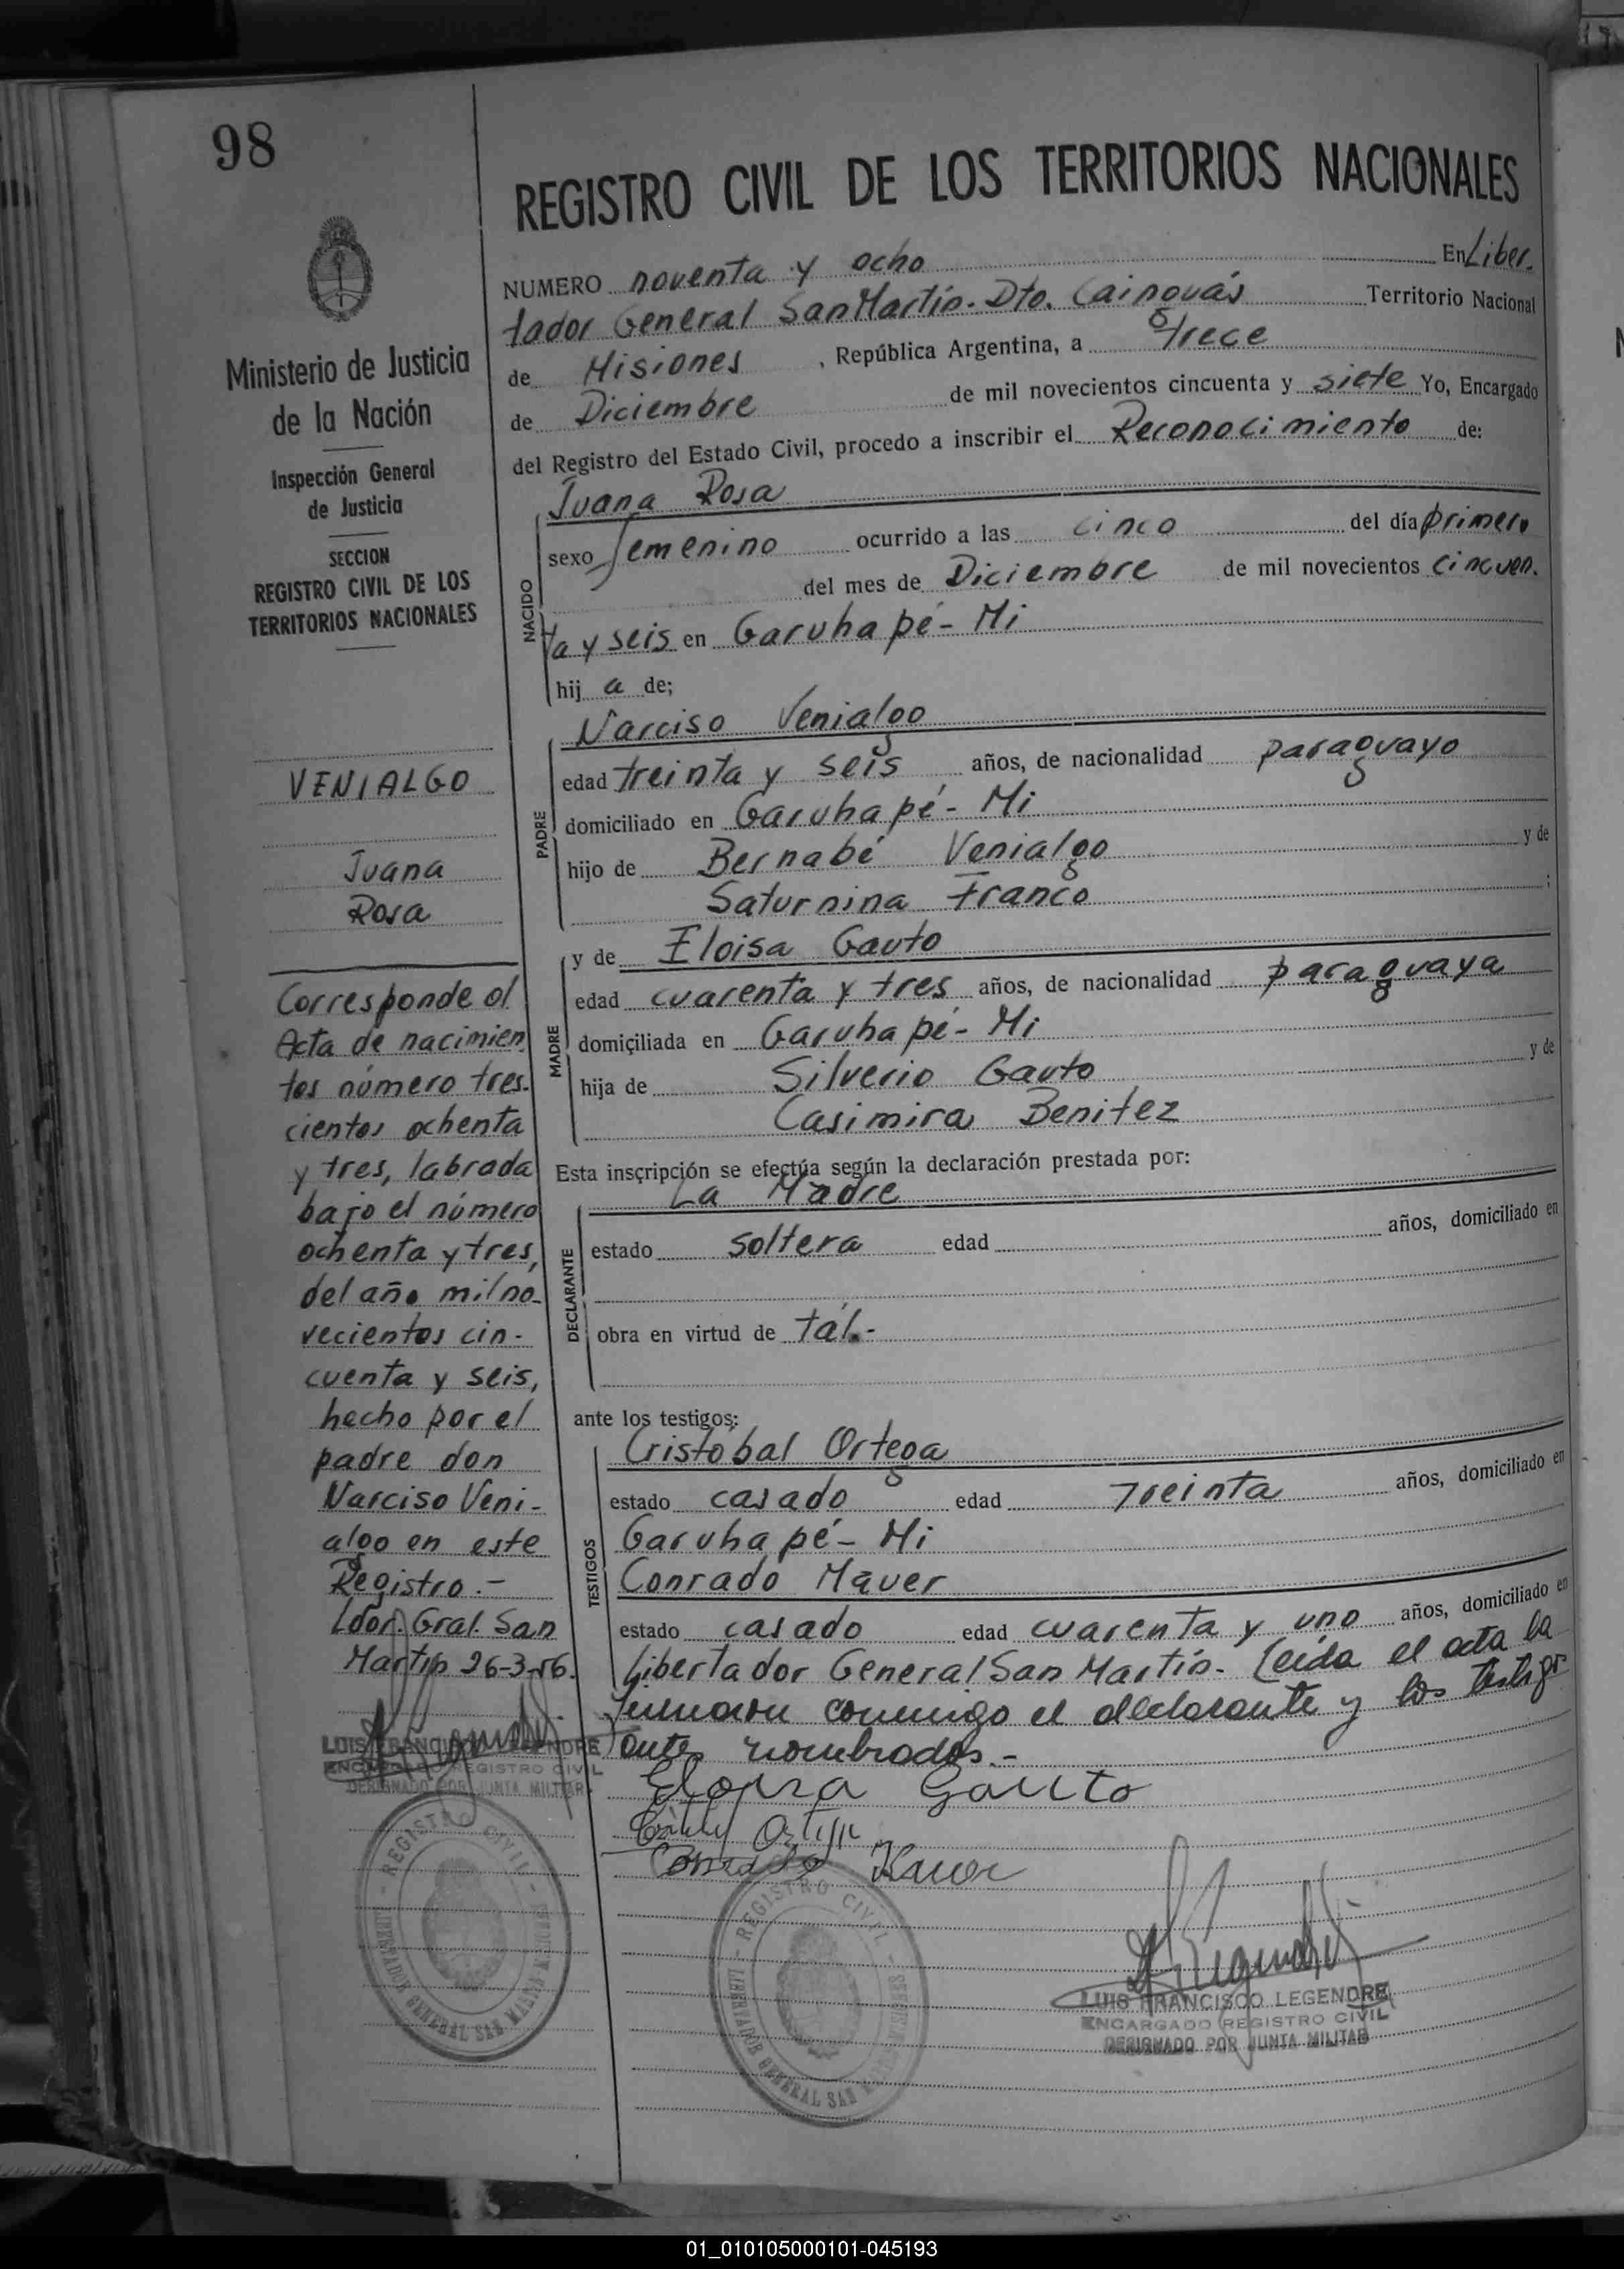 98
REGISTRO CIVIL DE LOS TERRITORIOS NACIONALES
Ministerio de Justicia
de la Nación
Inspección General
de Justicia
SECCION
REGISTRO CIVIL DE LOS
TERRITORIOS NACIONALES
VENIALGO
Juana
Rosa
Corresponde al
Acta de nacimien
tos número tres-
cientos ochenta
y tres, labrada
bajo el número
ochenta y tres,
del año mil no-
vecientos cin-
cuenta y seis,
hecho por el
padre don
Narciso Veni-
algo en este
Registro.-
Ldor. Gral. San
Martín 26-3-56.
LUIS FRANCISCO LEGENDRE
ENCARGADO REGISTRO CIVIL
DESIGNADO POR JUNTA MILITAR
REGISTRO CIVIL
LIBERTADOR GENERAL SAN MARTIN
NUMERO noventa y ocho En Liber.
tador General San Martín. Dto. Cainguás Territorio Nacional
de Misiones, República Argentina, a trece
de Diciembre de mil novecientos cincuenta y siete Yo, Encargado
del Registro del Estado Civil, procedo a inscribir el Reconocimiento de:
NACIDO
Juana Rosa
sexo femenino ocurrido a las cinco del día primero
del mes de Diciembre de mil novecientos cincuen.
ta y seis en Garuhapé-Mi
hija de;
PADRE
Narciso Venialgo
edad treinta y seis años, de nacionalidad paraguayo
domiciliado en Garuhapé-Mi
hijo de Bernabé Venialgo y de
Saturnina Franco ;
MADRE
y de Eloisa Gauto
edad cuarenta y tres años, de nacionalidad paraguaya
domiciliada en Garuhapé-Mi
hija de Silverio Gauto y de
Casimira Benitez
Esta inscripción se efectúa según la declaración prestada por:
DECLARANTE
La Madre
estado soltera edad años, domiciliado en
obra en virtud de tál.-
ante los testigos:
TESTIGOS
Cristóbal Ortega
estado casado edad treinta años, domiciliado en
Garuhapé-Mi
Conrado Mauer
estado casado edad cuarenta y uno años, domiciliado en
Libertador General San Martín. Leída el acta la
firmaron conmigo el declarante y los testigos
antes nombrados.-
Eloisa Gauto
Conrado
REGISTRO CIVIL
LIBERTADOR GENERAL SAN
LUIS FRANCISCO LEGENDRE
ENCARGADO REGISTRO CIVIL
DESIGNADO POR JUNTA MILITAR
01_010105000101-045193